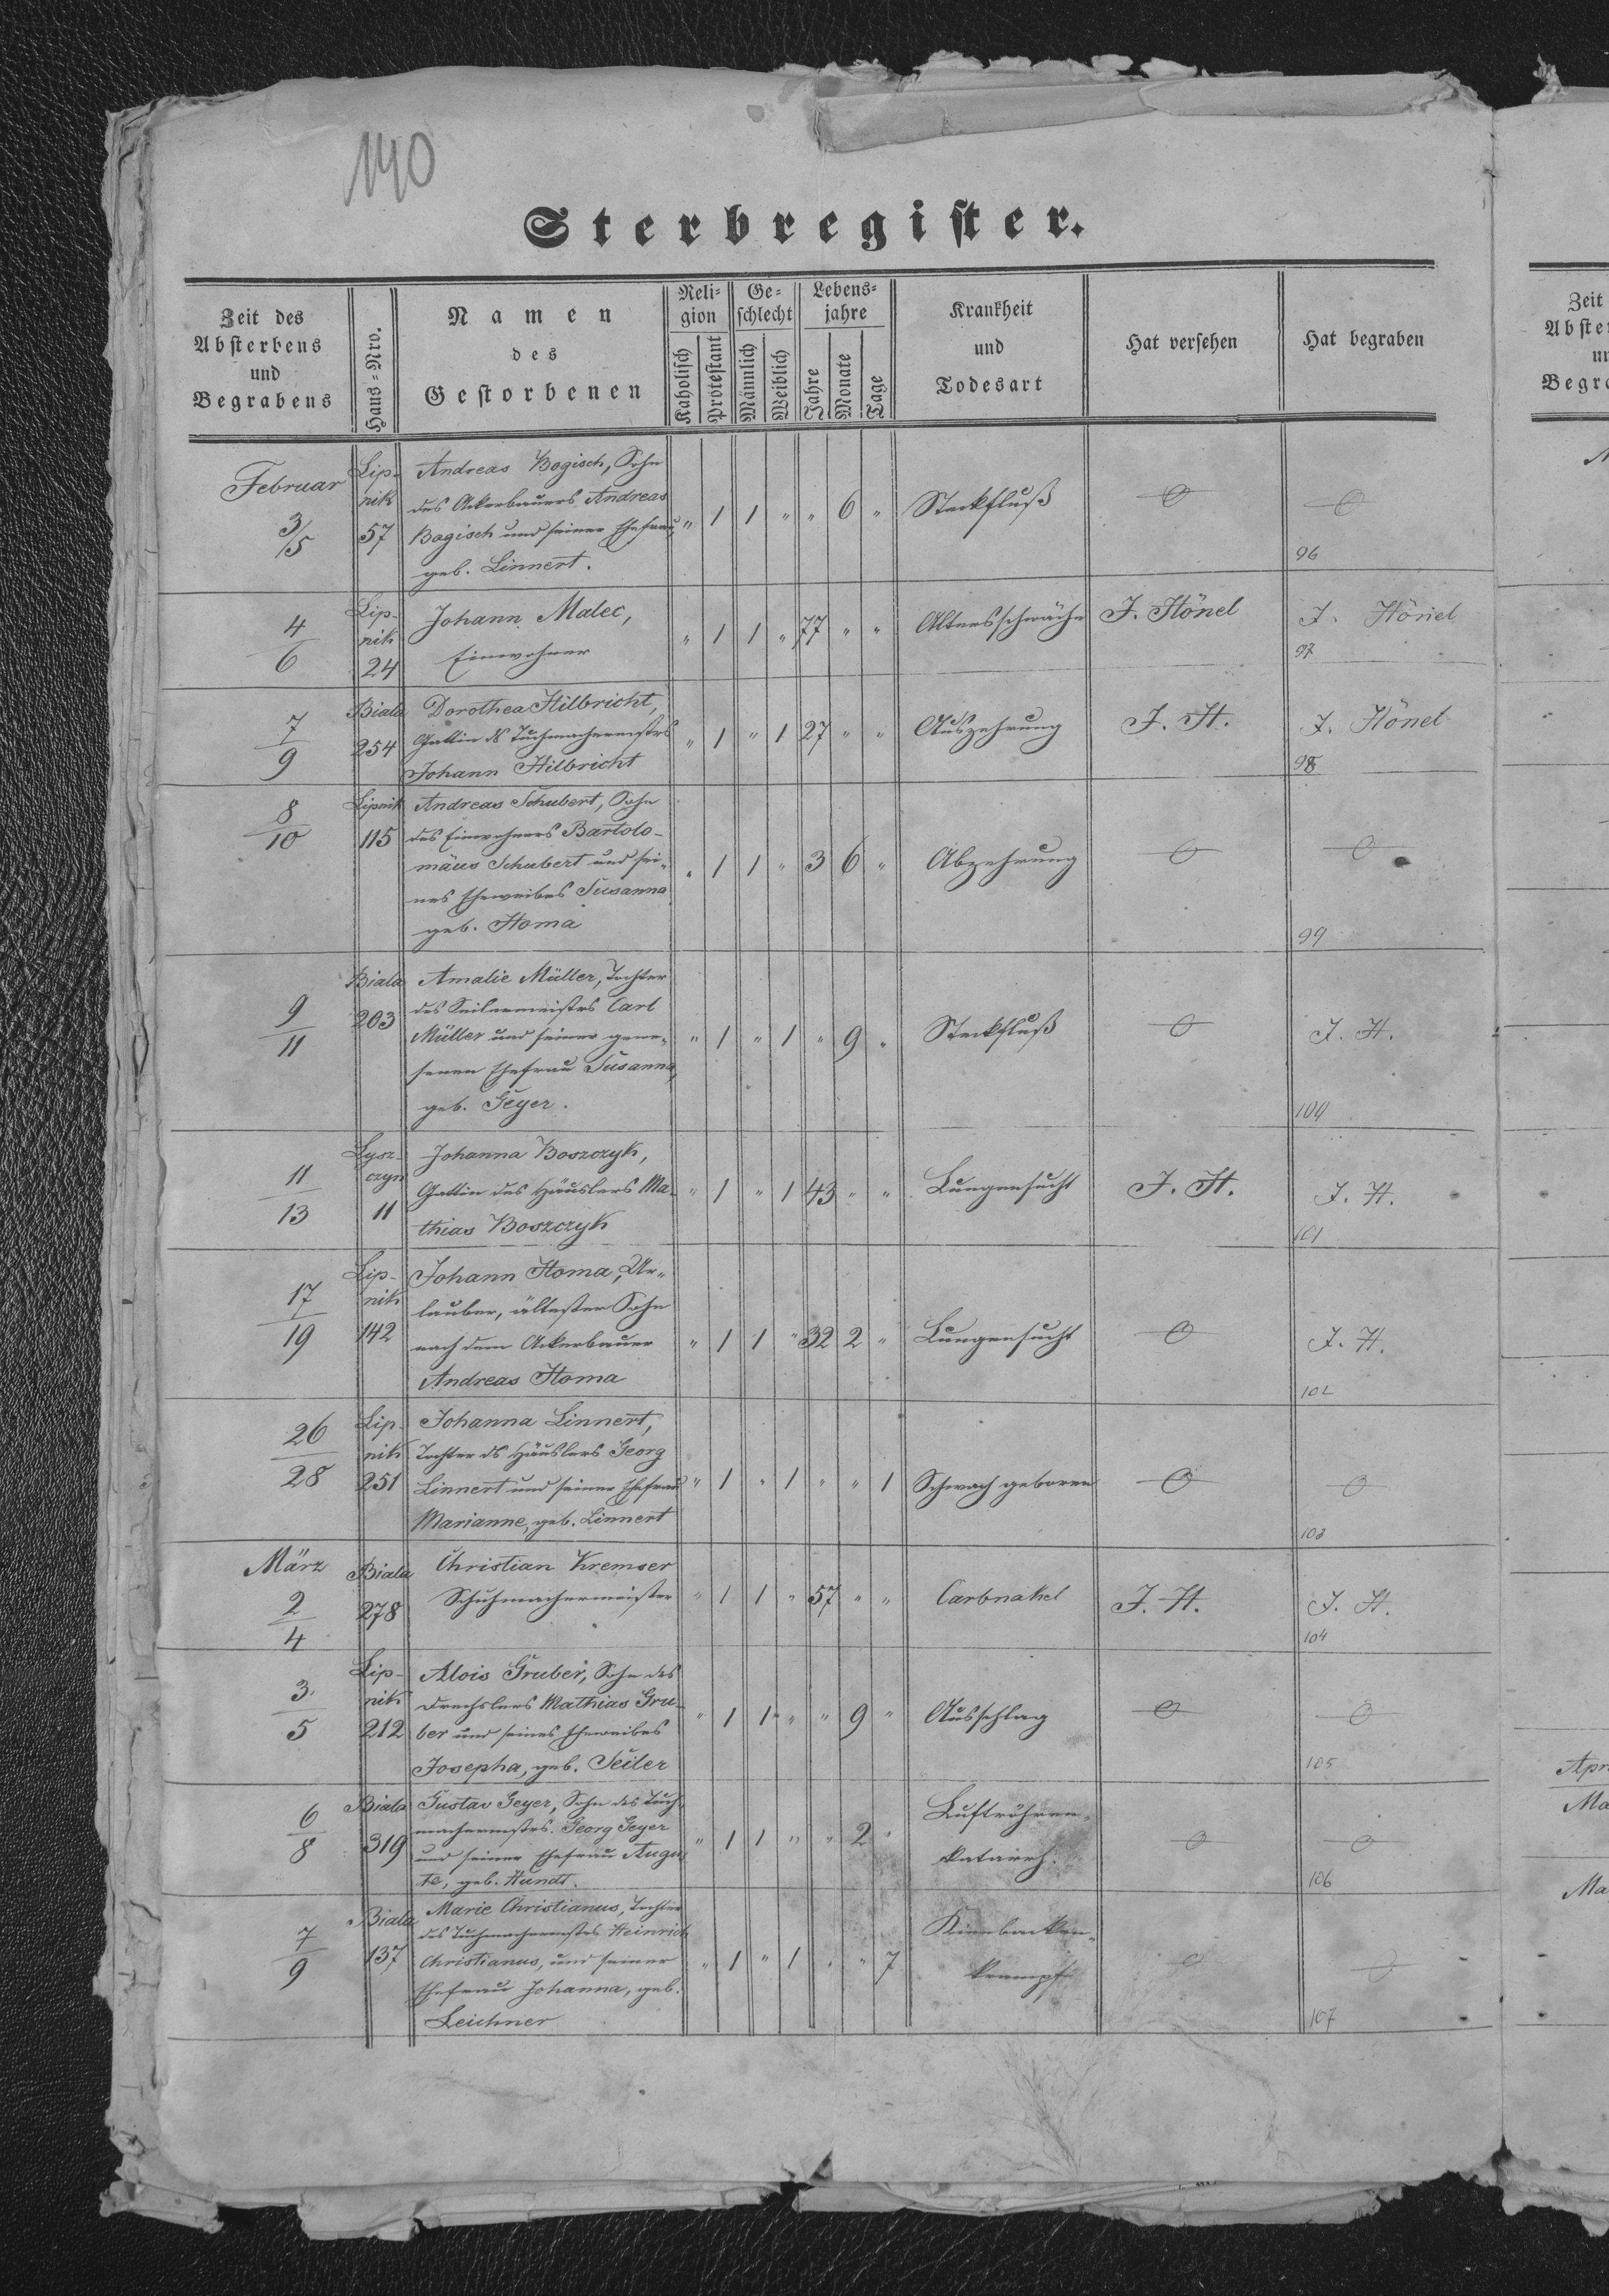 140
Sterbregister.
Zeit des Absterbens und Begrabens
Haus-Nro.
Namen des Gestorbenen
Religion
Kaholisch
Protestant
Geschlecht
Männlich
Weiblich
Lebensjahre
Jahre
Monate
Tage
Krankheit und Todesart
Hat versehen
Hat begraben
Februar Lip- Andreas Bogisch, Sohn
nik des Ackerbauers Andreas
3/5 57 Bogisch und seiner Ehefrau, " 1 1 " " 6 " Steckfluß
geb. Linnert. 96
Lip- Johann Malec,
4/6 nik Einwohner " 1 1 " 77 " " Altersschwäche J. Hönel J. Hönel
24 97
Biala Dorothea Hilbricht,
7/9 254 Gattin ds Tuchmachermstrs " 1 " 1 27 " " Auszehrung J. H. J. Hönel
Johann Hilbricht 98
Lipnik Andreas Schubert, Sohn
8/10 115 des Einwohners Bartolo-
mäus Schubert und sei- " 1 1 " 3 6 " Abzehrung
nes Eheweibes Susanna
geb. Homa 99
Biala Amalie Müller, Tochter
9/11 203 des Seilermeisters Carl
Müller und seiner gewe- " 1 " 1 " 9 " Steckfluß J. H.
senen Ehefrau Susanna,
geb. Geyer. 100
Lysz- Johanna Boszczyk,
11/13 czyn Gattin des Häuslers Ma- " 1 " 1 43 " " Lungensucht J. H. J. H.
11 thias Boszczyk 101
Lip- Johann Homa, Ur-
17/19 nik lauber, ältester Sohn
142 nach dem Ackerbauer " 1 1 " 32 2 " Lungensucht J. H.
Andreas Homa 102
26/28 Lip- Johanna Linnert,
nik Tochter ds Häuslers Georg
251 Linnert und seiner Ehefrau " 1 " 1 " " 1 Schwach geboren
Marianne, geb. Linnert 103
März Biala Christian Kremser
2/4 278 Schuhmachermeister " 1 1 " 57 " " Carbnakel J. H. J. H.
104
Lip- Alois Gruber, Sohn des
3/5 nik Drechslers Mathias Gru-
212 ber und seines Eheweibes " 1 1 " " 9 " Ausschlag
Josepha, geb. Seiler 105
6/8 Biala Gustav Geyer, Sohn des Tuch-
319 machermstrs. Georg Geyer " 1 1 " " 2 " Luftröhren-
und seiner Ehefrau Augus- katarrh.
te, geb. Hundt. 106
Biala Marie Christianus, Tochter
7/9 137 des Tuchmachermstrs Heinrich
Christianus, und seiner " 1 " 1 " " 7 Kinnbacken-
Ehefrau Johanna, geb. krampf
Leichner 107
Zeit
Apr
Ma
Ma